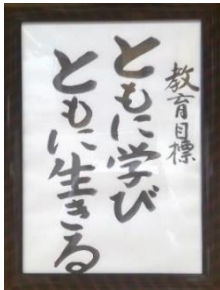 教育目標
ともに学び
ともに生きる